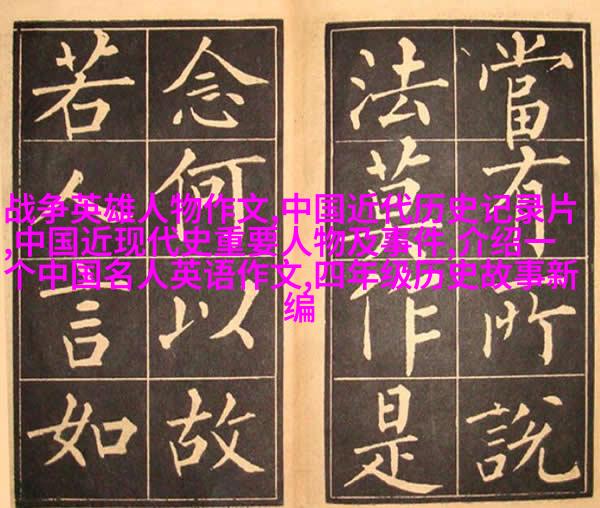 當有所說
法莫作是
念何以故
若人言如
战争英雄人物作文,中国近代历史记录片
,中国近现代史重要人物及事件,介绍一
个中国名人英语作文,四年级历史故事新
编